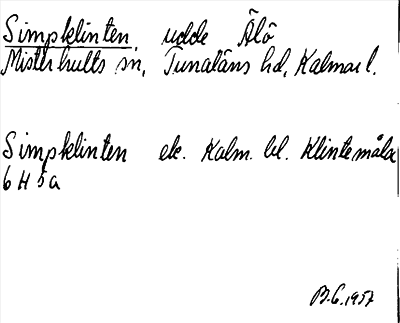 Simpklinten, udde Älö
Misterhults sn, Tunaläns hd, Kalmar l.
Simpklinten ek. Kalm. bl. Klintemåla
6 H 5a
B.G. 1957